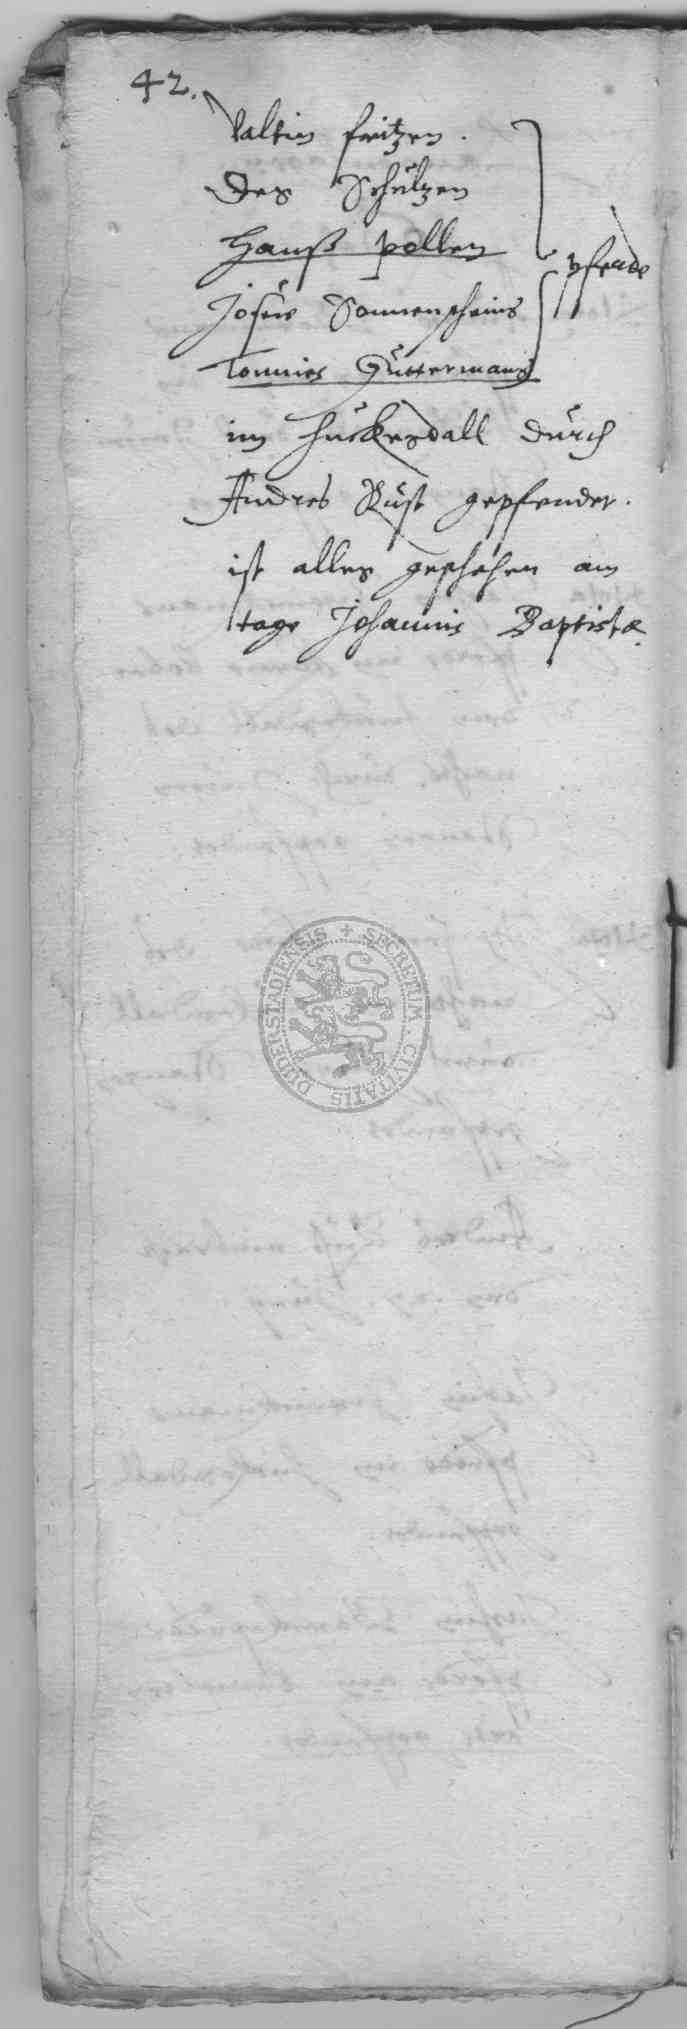 42.
Valtin fritzen.
Des Schultzen
Hanß pollen
pferde
Josuen Sonnenscheins
Tonnies Guttermans
im huckesdall durch
Andres Rust gepfendet.
ist alles geschehen am
tage Johannis Baptistæ.
SECRETUM · CIVITATIS DUDERSTADIENSIS